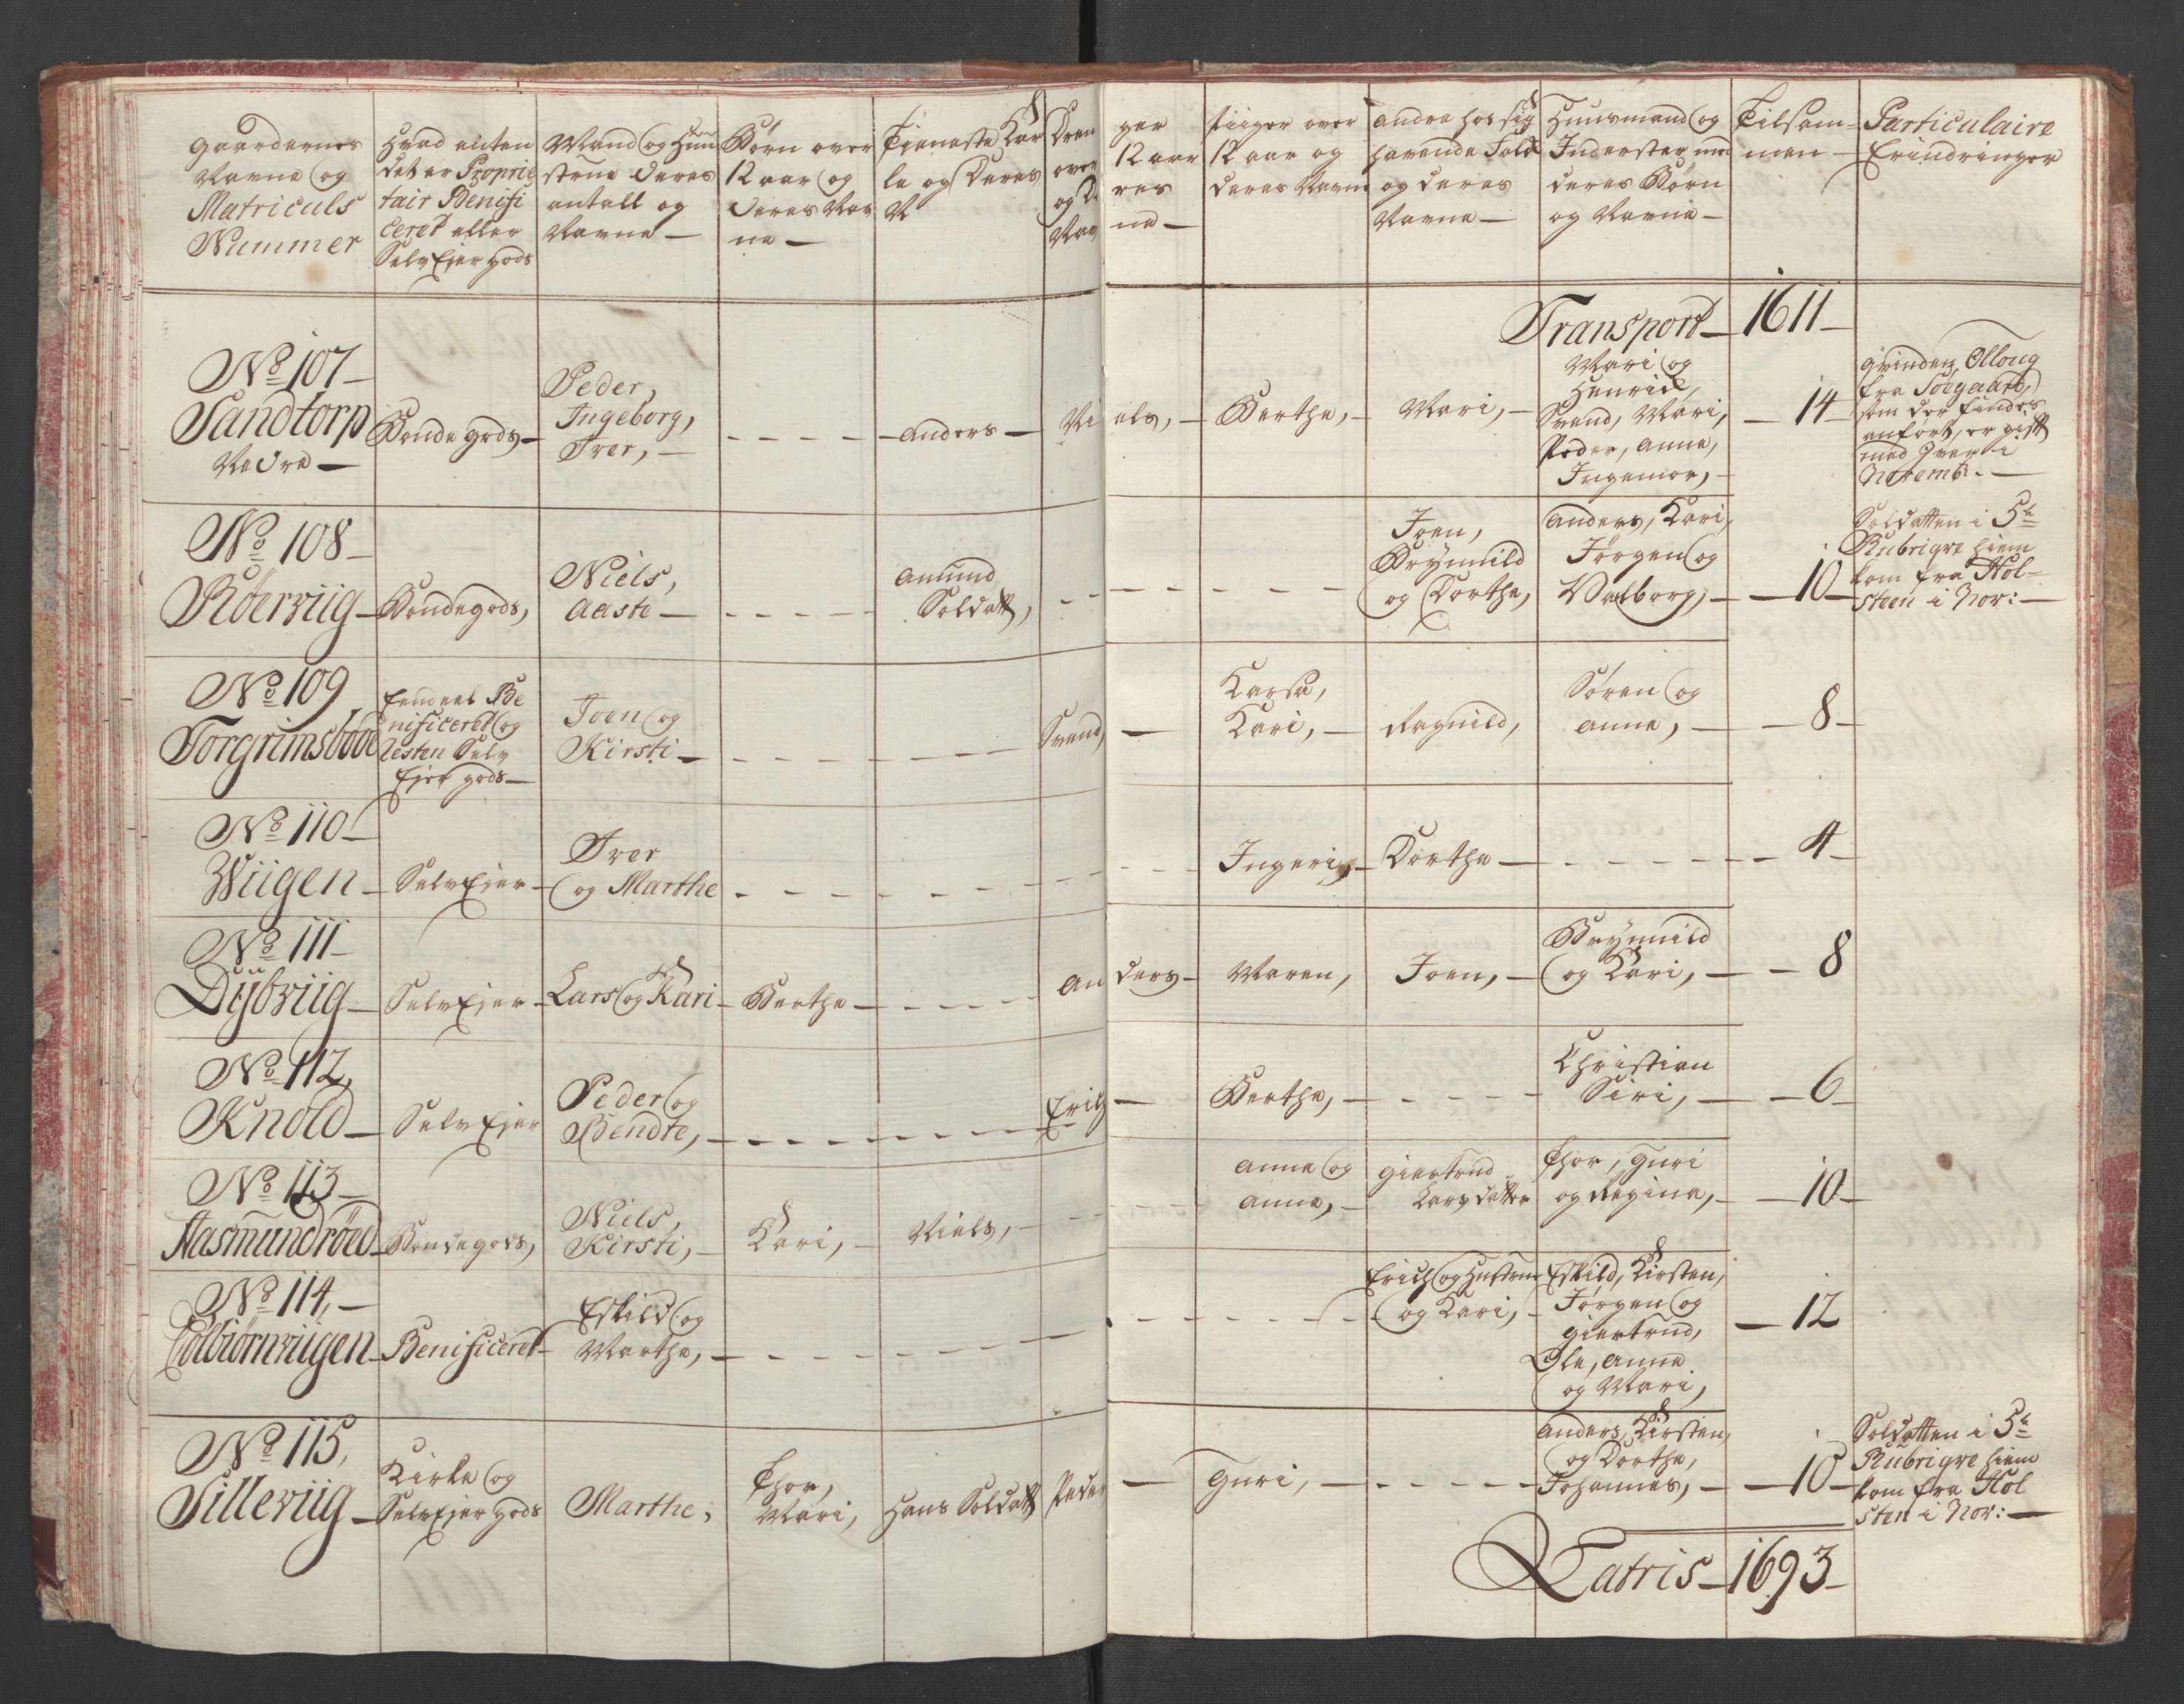 Gaardernes
Navne og
Matriculs
Nummer
Hvad enten
det er Proprie
tair Benifi
ceret eller
SelvEjer gods
Mand og Huu
strue deres
antall og
Navne —
Børn over
12 aar og
deres Nav
ne —
Tjeneste Kar
le og Deres
N
Dren
over
og D.
Nav
ger
12 aar
res
ne —
Piiger over
12 aar og
deres Navne
andre hos sig
havende Folk
og deres
Navne —
Huusmænd og
Inderster med
deres Børn
og Navne —
Tilsam-
men —
Particulaire
Erindringer
Transport — 1611 —
No 107 —
Sandtorp
Nedre —
Bonde gods —
Peder,
Ingeborg,
Iver, —
— — — — Anders —
Ni
els, —
Berthe, —
Mari, —
Mari og
Henrich,
Svend, Mari,
Peder, Anne,
Ingemor, —
— 14 —
Qvinden, Olloug
fra Søegaard,
som der findes
anført, er gift
med Iver i
Novemb: —
No 108 —
Røerviig —
Bondegods,
Niels,
Aaste —
— — — —
Amund
Soldatt,
— — — — — — —
Joen,
Brynnild
og Dorthe,
Anders, Kari,
Jørgen og
Valborg, —
— 10 —
Soldatten i 5te
Rubriqve hiem
kom fra Hol-
steen i Nov: —
No 109
Torgrimsboe
Eendeel Be
nificeret og
Resten Selv
Ejer gods —
Joen og
Kirsti —
— — — — — — —
Svend,
—
Kari, —
Ragnild,
Søren og
Anne, —
— 8 —
No 110 —
Wiigen —
SelvEjer —
Iver
og Marthe
— — — — — — — — — —
Ingeri, —
Dorthe —
— — — — —
— 4 —
No 111 —
Dÿbviig —
SelvEjer —
Lars og Kari —
Berthe —
— — — —
An
ders —
Maren,
Joen, —
Brynnild
og Kari, —
— 8
No 112,
Knold —
SelvEjer
Peder og
Bendte, —
— — — — — — —
Erich
—
Berthe, —
— — — —
Christian
Siri, —
— 6 —
No 113 —
Aasmundrøed —
Bondegods,
Niels,
Kirsti, —
Kari, —
Niels, —
— — — —
Anne og
Anne, —
Giertrud
Larsdatter
Thor, Guri
og Regine, —
— 10 —
No 114, —
Colbiørnviigen —
Benificeret —
Eskild og
Marthe, —
— — — — — — — — — — —
Erich og Hustrue
og Kari, —
Eskild, Kirsten,
Jørgen og
Giertrud,
Ole, Anne
og Mari,
— 12
No 115,
Silleviig —
Kirke og
SelvEjer gods
Marthe,
Thor,
Mari,
Hans Soldatt
Peder
—
Guri, —
— — — —
Anders, Kirsten,
og Dorthe,
Johannes, —
— 10 —
Soldatten i 5te
Rubriqve hiem
kom fra Hol
sten i Nov: —
Latris — 1693 —